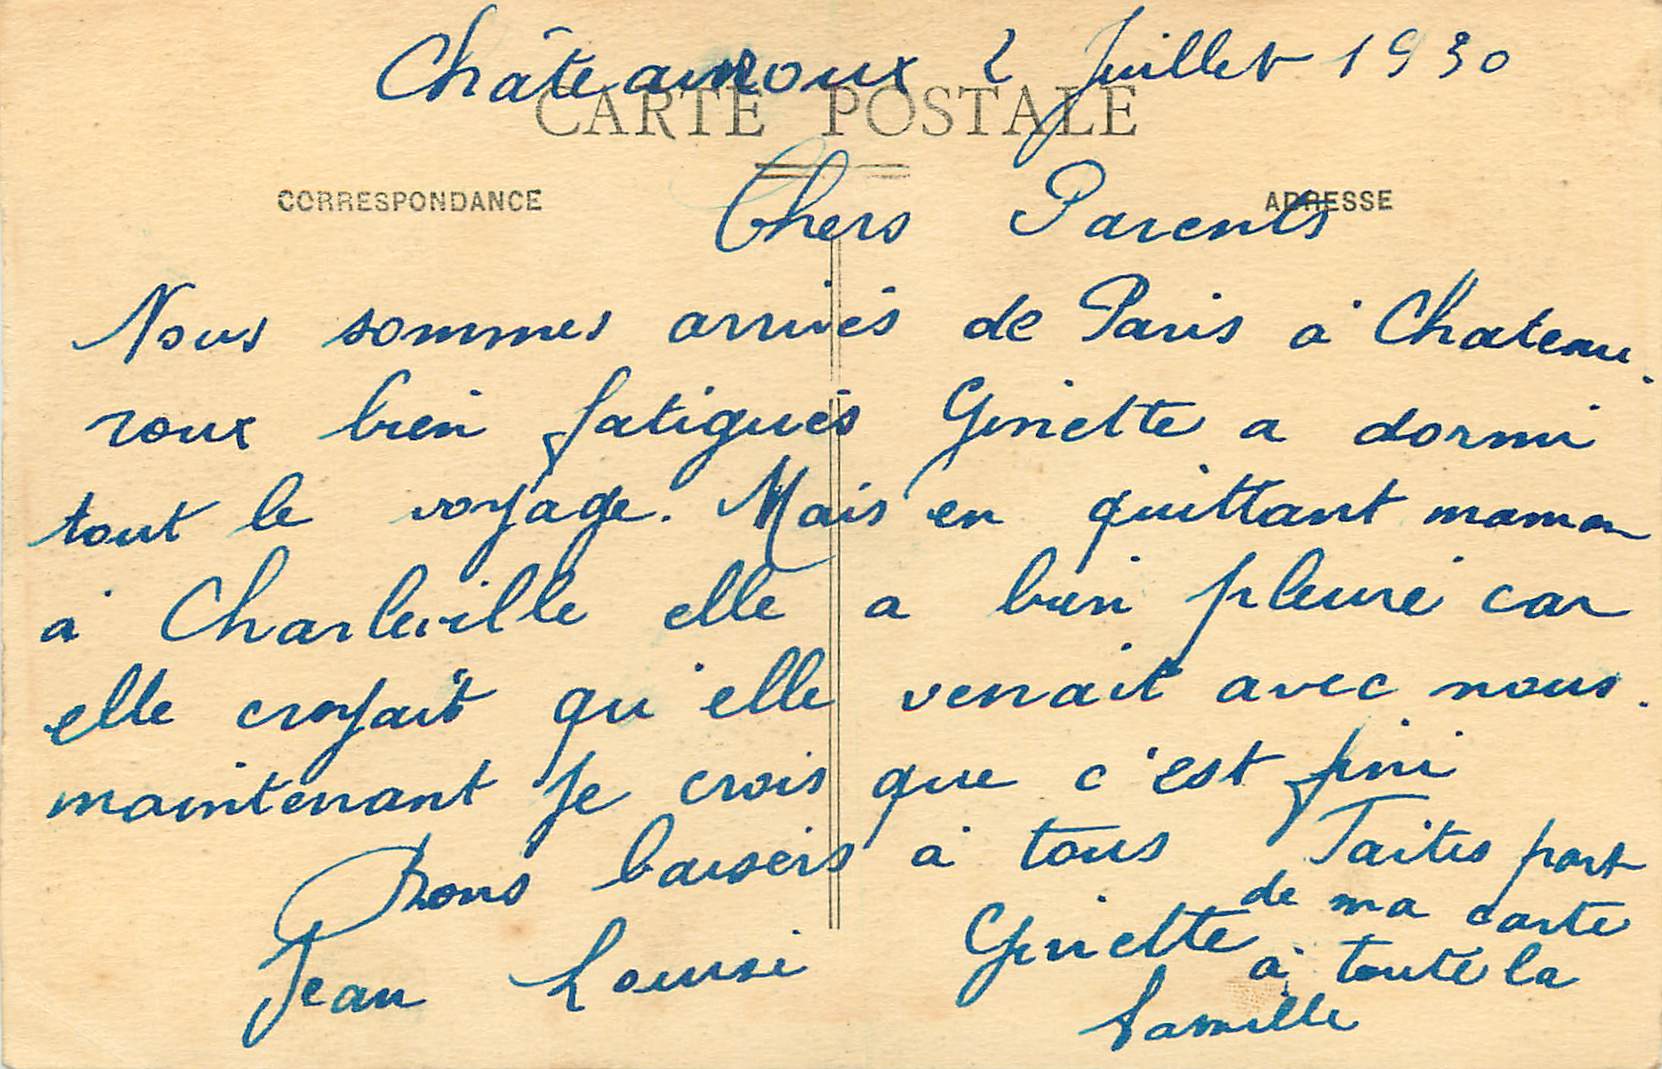 Châteauroux 2 Juillet 1930
CARTE POSTALE
CORRESPONDANCE
ADRESSE
Chers Parents
Nous sommes arrivés de Paris à Chateau.
roux bien fatigués Ginette a dormi
tout le voyage. Mais en quittant maman
à Charleville elle a bien pleuré car
elle croyait qu'elle venait avec nous.
maintenant je crois que c'est fini
Bons baisers à tous
Jean Louise Ginette
Faites part
de ma carte
à toute la
famille